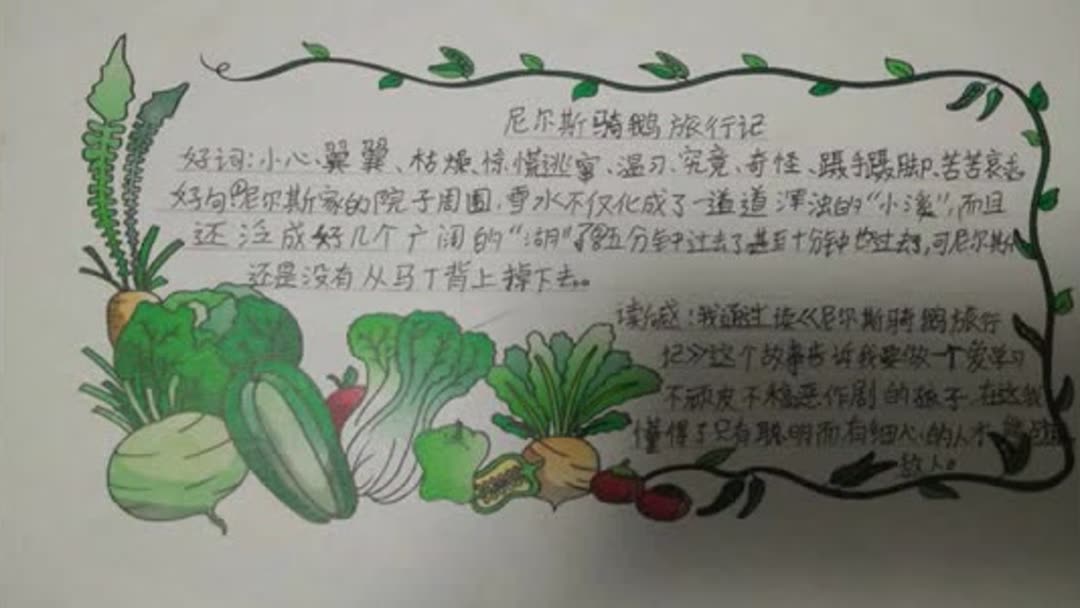 尼尔斯骑鹅旅行记
好词:小心翼翼、枯燥、惊慌逃窜、温习、究竟、奇怪、蹑手蹑脚、苦苦哀
好句①尼尔斯家的院子周围,雪水不仅化成了一道道浑浊的“小溪”,而且
还泛成好几个广阔的“湖”。五分钟过去了甚至十分钟也过去了,可尼尔斯
还是没有从马丁背上掉下去。
读后感:我通过读《尼尔斯骑鹅旅行
记》这个故事告诉我要做一个爱学习
不顽皮不搞恶作剧的孩子,在这我
懂得了只有聪明而有细心的人才能战胜
敌人。